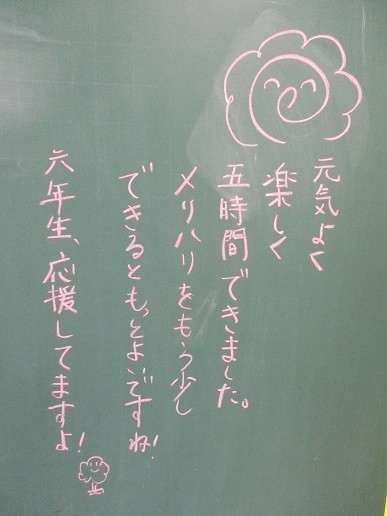 元気よく
楽しく
五時間できました。
メリハリをもう少し
できるともっとよいですね!
六年生、応援してますよ!